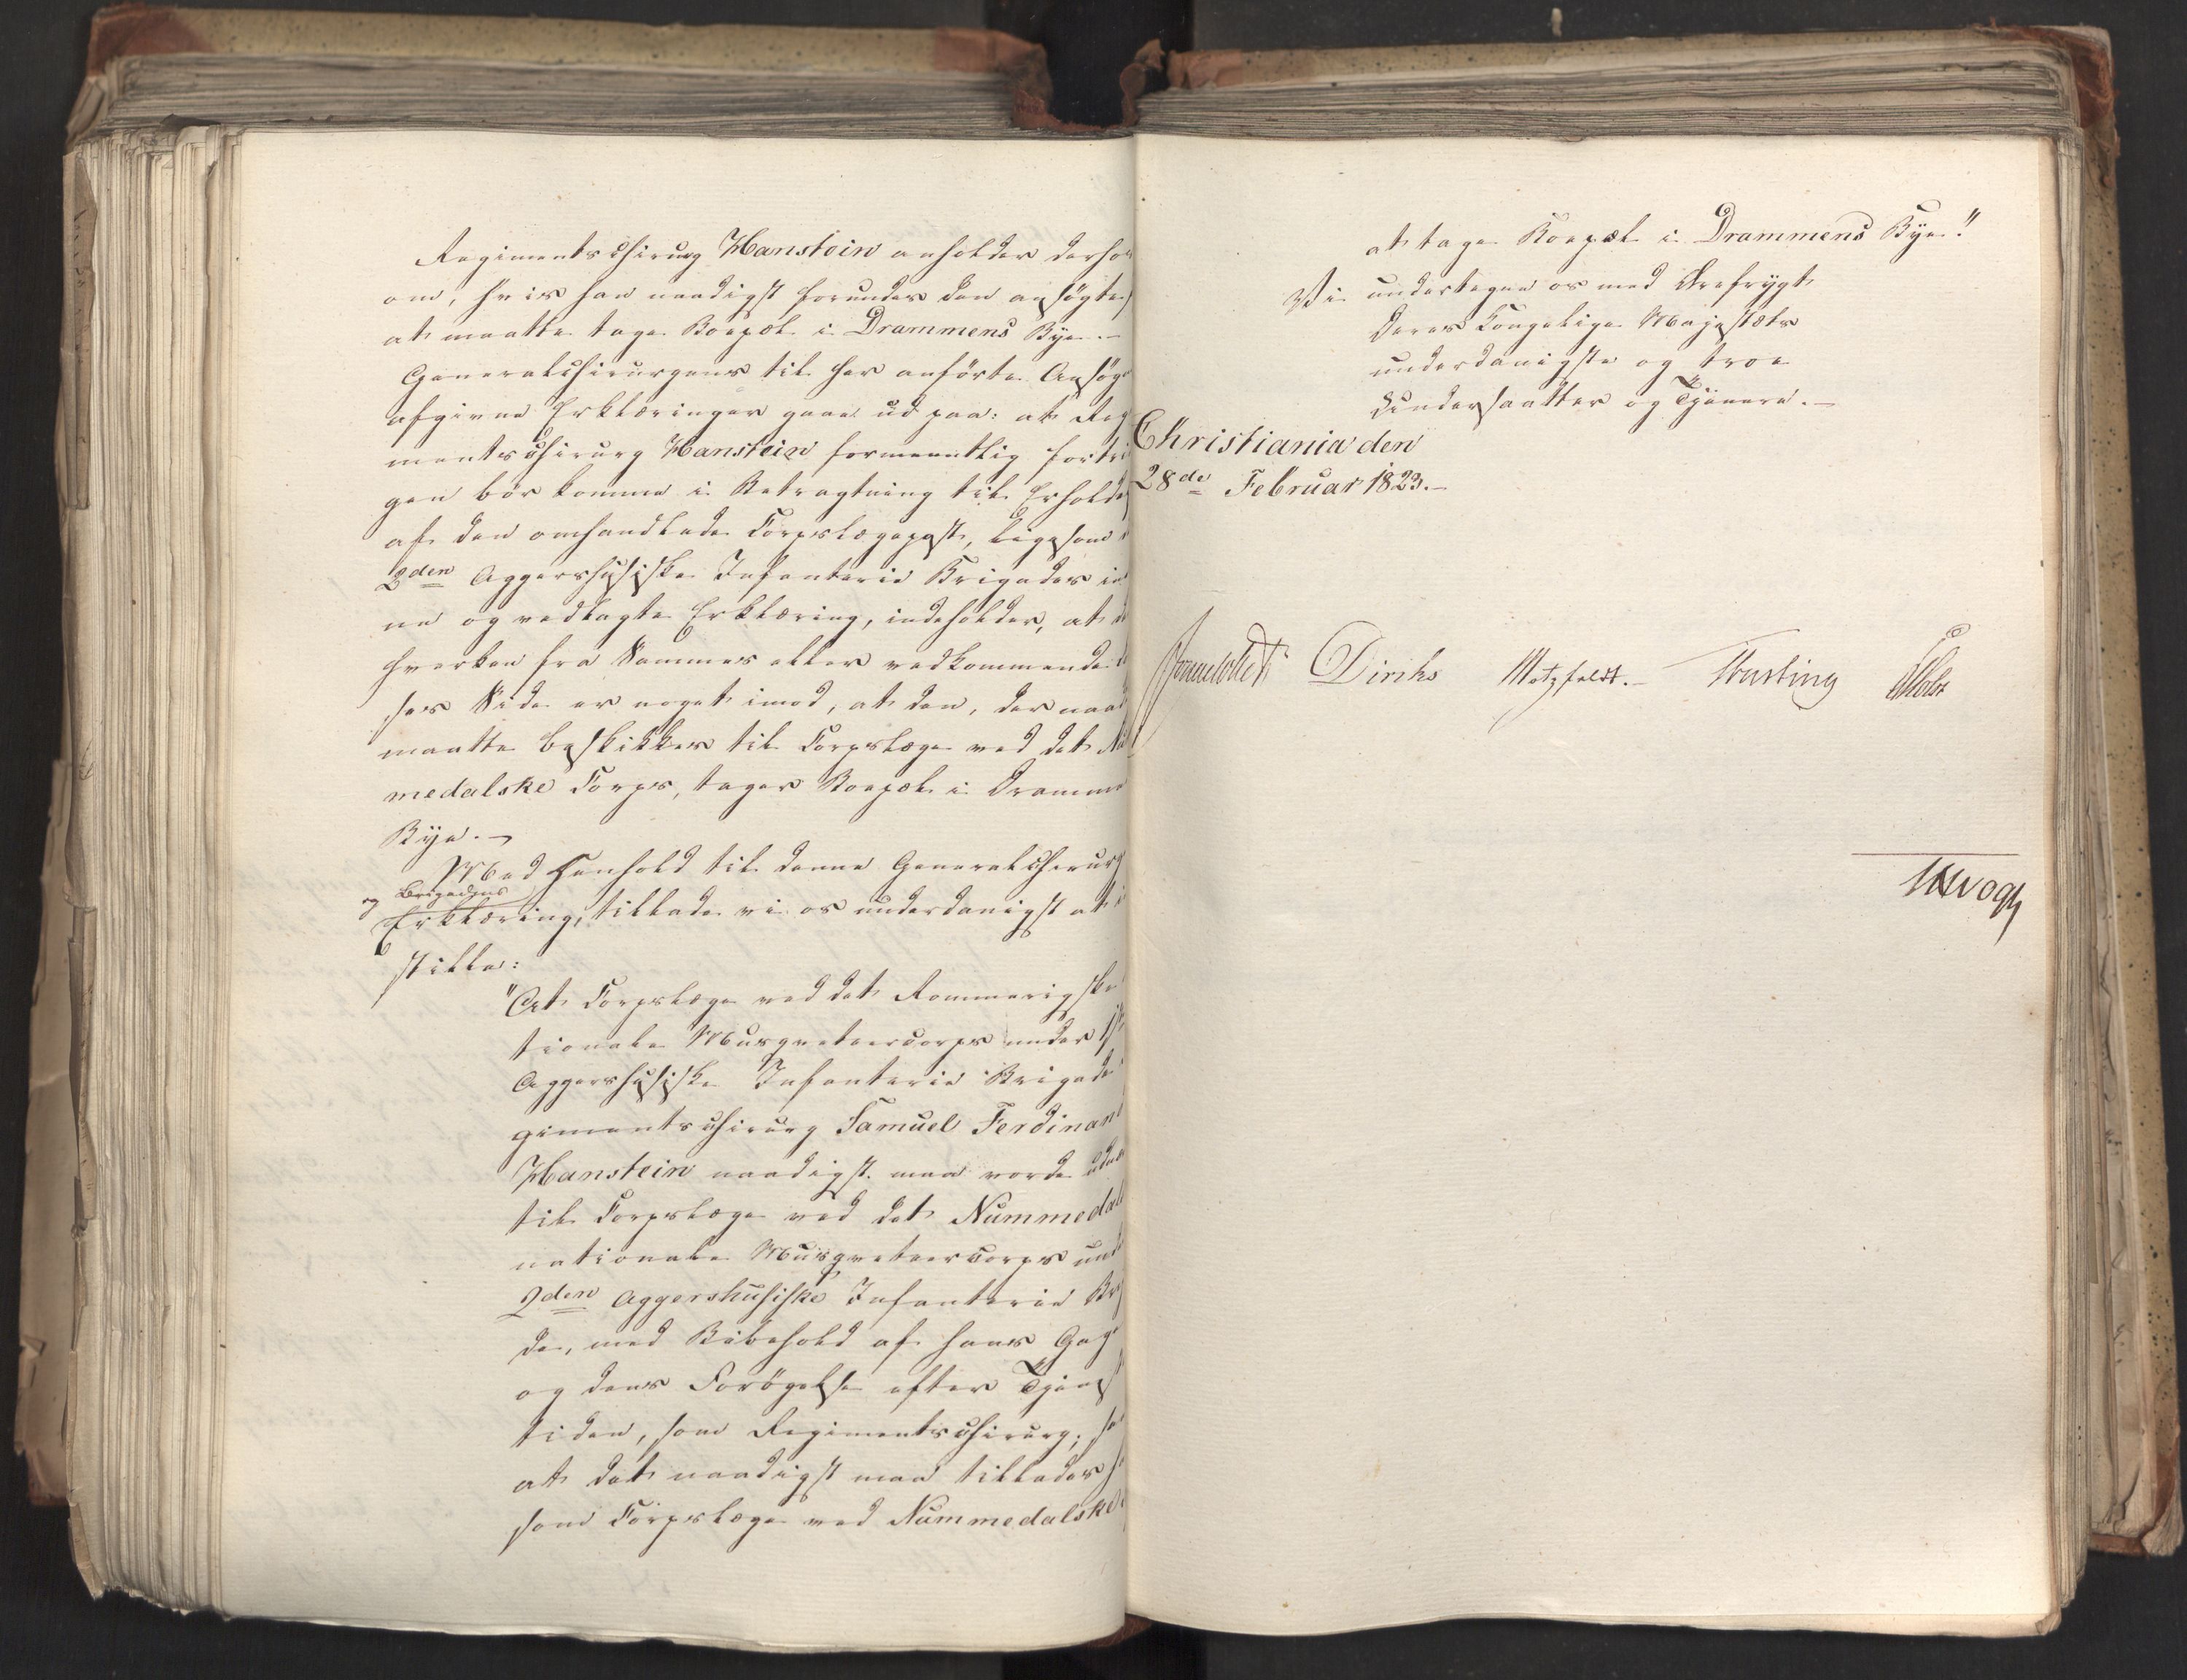 Regimentschirurg Hanstein anholder derhos
om, hvis han naadigst forundes den ansøgte
at maatte tage Boepæl i Drammens Bye. –
Generalchirurgens til her anførte Ansøg
afgivne Erklæringer gaae ud paa: at Reg
mentschirurg Hanstein formeentlig fortri
gen bør komme i Betragtning til Erholde
af den omhandlede Corpslægepost, ligesom
2den Aggershusiske Infanterie Brigades in
ne og vedlagte Erklæring, indeholder, at d
hverken fra Sammes eller vedkommende
ses Side er noget imod, at den, der naad
maatte beskikkes til Corpslæge ved det Nu
medalske Corps, tager Boepæl i Dramme
Bye. –
Med Henhold til denne Generalchirurg
og Brigadens
Erklæring, tillade vi os underdanigst at i
stille:
"At Corpslæge ved det Rommerigske
tionale Musqueteercorps under 1ste
Aggershusiske Infanterie Brigade
gimentschirurg Samuel Ferdinand
Hanstein naadigst maa vorde udnæ
til Corpslæge ved det Nummedal
nationale Musqueteercorps unde
2den Aggershusiske Infanterie Bri
de, med Bibehold af hans Gage
og dens Forøgelse efter Tjenest
tiden, som Regimentschirurg; sa
at det naadigst maa tillades h
som Corpslæge ved Nummedalske
at tage Boepæl i Drammens Bye."
Vi undertegne os med Ærefrygt
Deres Kongelige Majestæts
underdanigste og troe
Undersaatter og Tjenere. –
Christiania den
28de Februar 1823. –
Sommerhielm Diriks Motzfeldt. Krusting Holst
Vogt